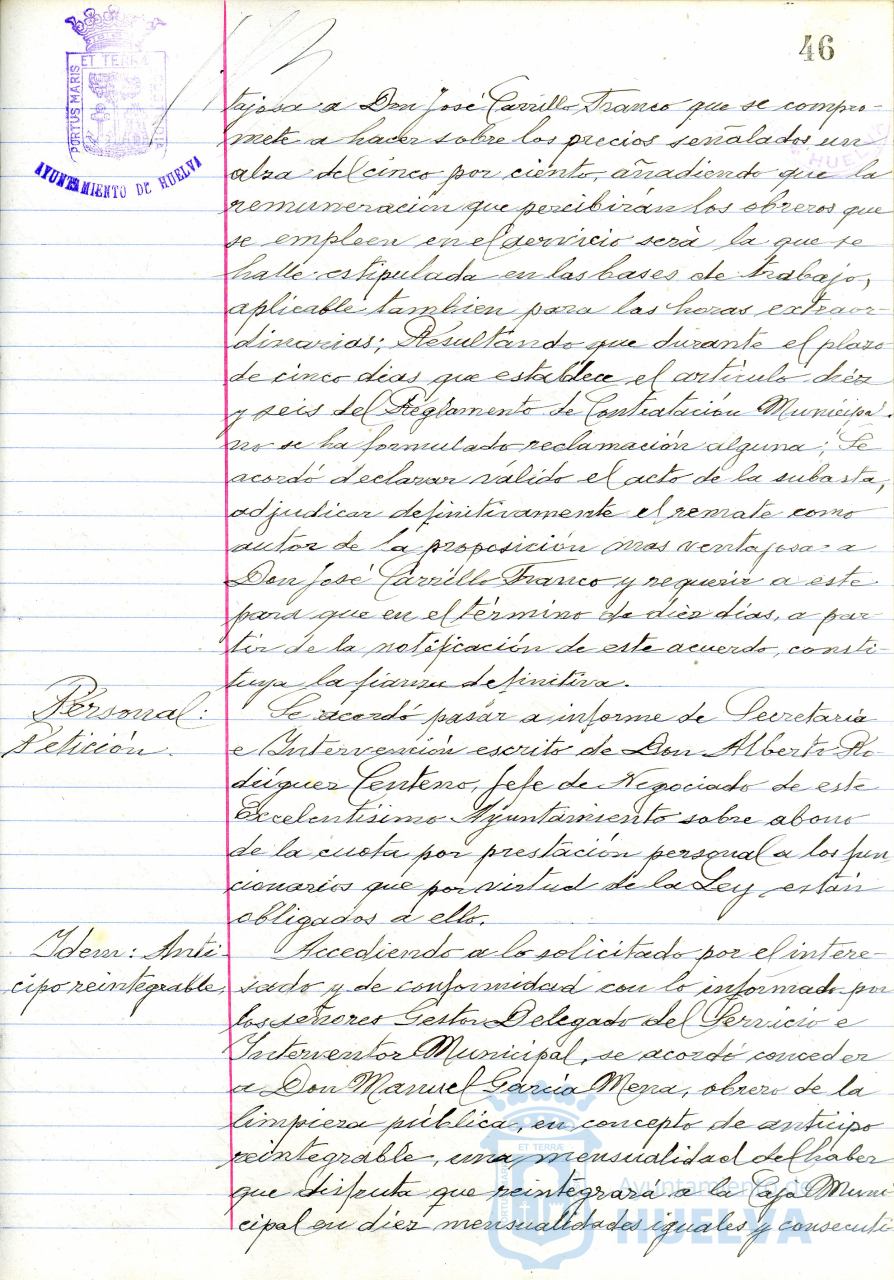 46
PORTUS MARIS
ET TERRÆ
CUSTODIA
AYUNTAMIENTO DE HUELVA
HUELVA
tajosa a Don José Carrillo Franco que se compro-
mete a hacer sobre los precios señalados un
alza del cinco por ciento, añadiendo que la
remuneración que percibirán los obreros que
se empleen en el servicio será la que se
halle estipulada en las bases de trabajo,
aplicable tambien para las horas extraor-
dinarias; Resultando que durante el plazo
de cinco dias que establece el artículo diez
y seis del Reglamento de Contratación Municipal
no se ha formulado reclamación alguna; Se
acordó declarar válido el acto de la subasta,
adjudicar definitivamente el remate como
autor de la proposición mas ventajosa a
Don José Carrillo Franco y requerir a este
para que en el término de diez dias, a par-
tir de la notificación de este acuerdo, consti-
tuya la fianza definitiva.
Personal:
Petición.
Se acordó pasar a informe de Secretaria
e Intervención escrito de Don Alberto Ro-
driguez Centeno, Jefe de Negociado de este
Excelentísimo Ayuntamiento sobre abono
de la cuota por prestación personal a los fun
cionarios que por virtud de la Ley están
obligados a ello.
Idem: Anti-
cipo reintegrable,
Accediendo a lo solicitado por el intere-
sado y de conformidad con lo informado por
los señores Gestor Delegado del Servicio e
Interventor Municipal, se acordó conceder
a Don Manuel García Mena, obrero de la
limpieza pública, en concepto de anticipo
reintegrable, una mensualidad del haber
que disfruta que reintegrará a la Caja Muni
cipal en diez mensualidades iguales y consecuti
ET TERRÆ
Ayuntamiento de
HUELVA